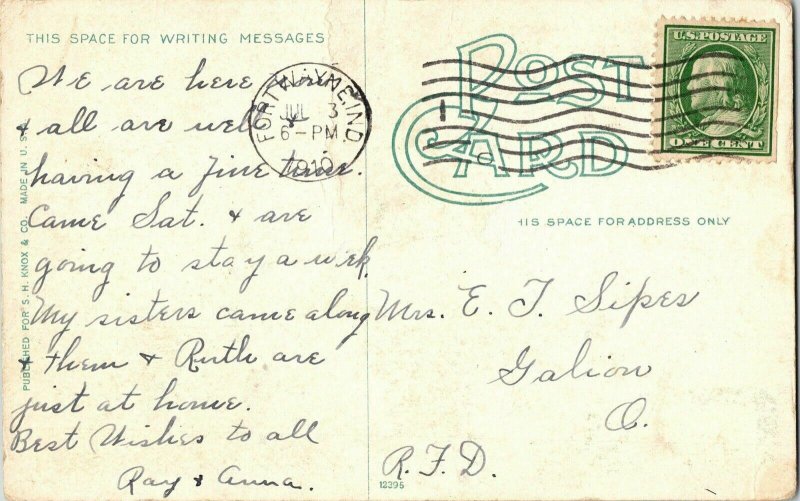 THIS SPACE FOR WRITING MESSAGES
We are here
& all are well
having a fine time.
Came Sat. & are
going to stay a week.
My sisters came along
& them & Ruth are
just at home.
Best Wishes to all
Ray & Anna.
PUBLISHED FOR S. H. KNOX & CO. MADE IN U. S. A.
FORT WAYNE, IND.
JUL 3
6-PM
1910
POST
CARD
U.S. POSTAGE
ONE CENT
HIS SPACE FOR ADDRESS ONLY
Mrs. E. J. Sipes
Galion
O.
R.F.D.
12395